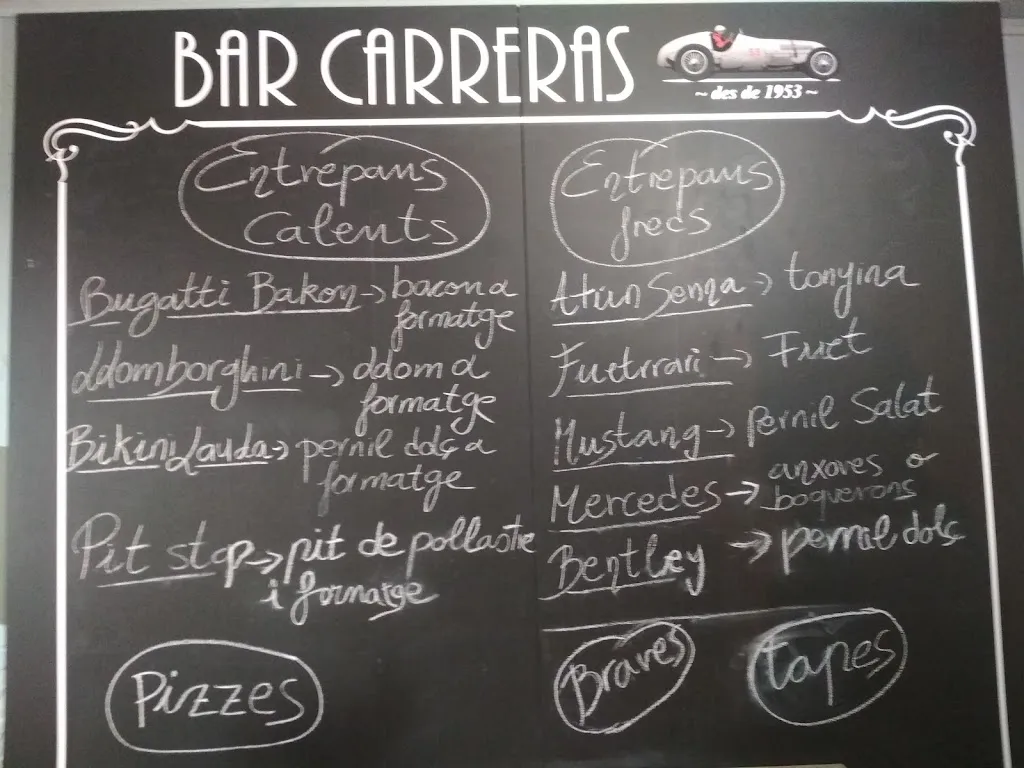 BAR CARRERAS
~ des de 1953 ~
Entrepans
Calents
Bugatti Bakon → bacon a
formatge
Ddomborghini → ddom a
formatge
Bikini Lauda → pernil dolç a
formatge
Pit stop → pit de pollastre
i formatge
Pizzes
Entrepans
freds
Atún Senna → tonyina
Fuetrrari → Fuet
Mustang → Pernil Salat
Mercedes → anxoves o
boquerons
Bentley → pernil dolç
Braves
tapes